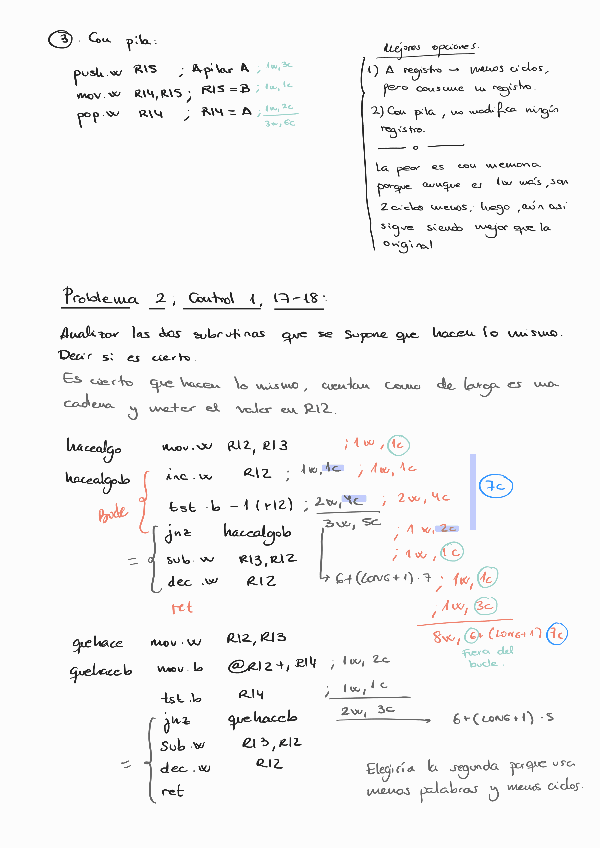 3. Con pila:
push.w R15 ; Apilar A ; 1w, 3c
mov.w R14, R15 ; R15 = B ; 1w, 1c
pop.w R14 ; R14 = A ; 1w, 2c
3w, 6c
Mejores opciones.
1) A registro → menos ciclos,
pero consume un registro.
2) Con pila, no modifica ningún
registro.
La peor es con memoria
porque aunque es 1w más, son
2 ciclos menos, luego, aún así
sigue siendo mejor que la
original
Problema 2, Control 1, 17-18:
Analizar las dos subrutinas que se supone que hacen lo mismo.
Decir si es cierto.
Es cierto que hacen lo mismo, cuentan como de larga es una
cadena y meter el valor en R12.
hacealgo mov.w R12, R13 ; 1w, 1c
hacealgob inc.w R12 ; 1w, 1c ; 1w, 1c
7c
Bucle
tst.b -1(r12) ; 2w, 4c ; 2w, 4c
3w, 5c
jnz hacealgob ; 1w, 2c
= sub.w R13, R12 ; 1w, 1c
dec.w R12 → 6+(LONG+1)·7 ; 1w, 1c
ret , 1w, 3c
8w, 6+(LONG+1) 7c
Fuera del
bucle.
quehace mov.w R12, R13
quehaceb mov.b @R12+, R14 ; 1w, 2c
tst.b R14 ; 1w, 1c
2w, 3c
jnz quehaceb → 6+(LONG+1)·5
sub.w R13, R12
= dec.w R12
ret
Elegiría la segunda porque usa
menos palabras y menos ciclos.